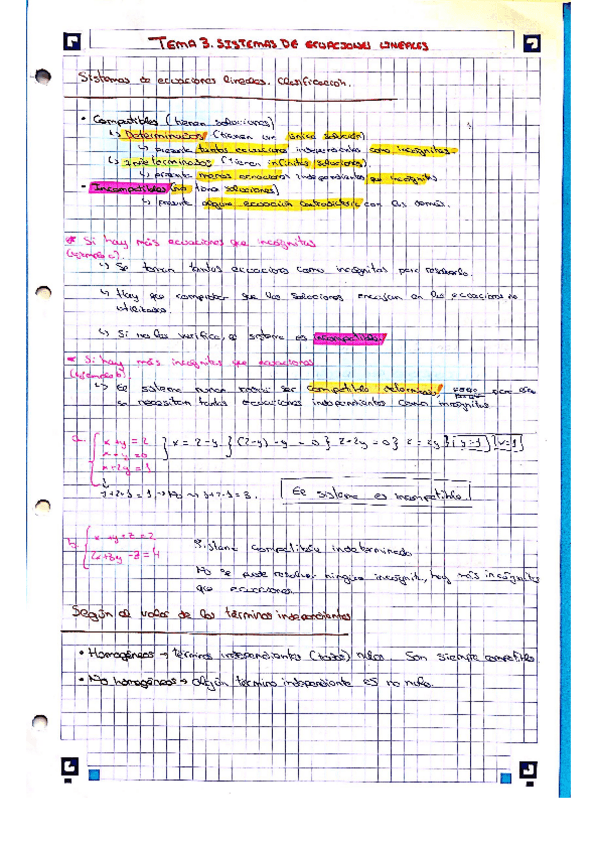 TEMA 3. SISTEMAS DE ECUACIONES LINEALES
Sistemas de ecuaciones lineales. Clasificación.
• Compatibles (tienen soluciones)
↳ Determinados (tienen una única solución)
↳ presenta tantas ecuaciones independientes como incógnitas.
↳ Indeterminados (tienen infinitas soluciones)
↳ presenta menos ecuaciones independientes que incógnitas
• Incompatibles (no tiene soluciones)
↳ presenta alguna ecuación contradictoria con las demás.
* Si hay más ecuaciones que incógnitas
(ejemplo a).
↳ Se toman tantas ecuaciones como incógnitas para resolverlo.
↳ Hay que comprobar que las soluciones encajan en las ecuaciones no
utilizadas.
↳ Si no las verifica, el sistema es incompatible
* Si hay más incógnitas que ecuaciones
(ejemplo b)
↳ El sistema nunca podrá ser compatible determinado, para
se necesitan tantas ecuaciones independientes como incógnitas
a. x+y=2 } x=2-y } (2-y)-y=0 } 2-2y=0 } 2=2y } y=1 x=1
x-y=0
x+2y=1
1+2·1=1 → No → 1+2·1=3. El sistema es incompatible
b. x+y+z=2
2x+3y-z=4
Sistema compatible indeterminado
No se puede resolver ninguna incógnita, hay más incógnitas
que ecuaciones.
Según el valor de los términos independientes
• Homogéneos → términos independientes (todos) nulos. Son siempre compatibles
• No homogéneos → algún término independiente es no nulo.